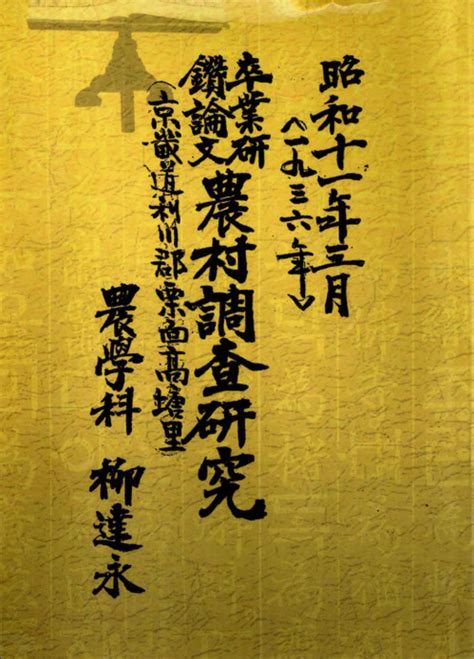 昭和十一年三月
〈一九三六年〉
卒業研
鑽論文
農村調查研究
(京畿道利川郡栗面高塘里)
農學科 柳達永